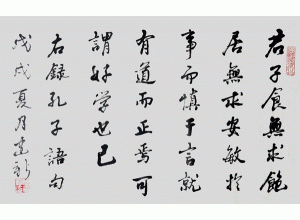 君子食無求飽
居無求安敏於
事而慎于言就
有道而正焉可
謂好学也已
右錄孔子語句
戊戌夏月